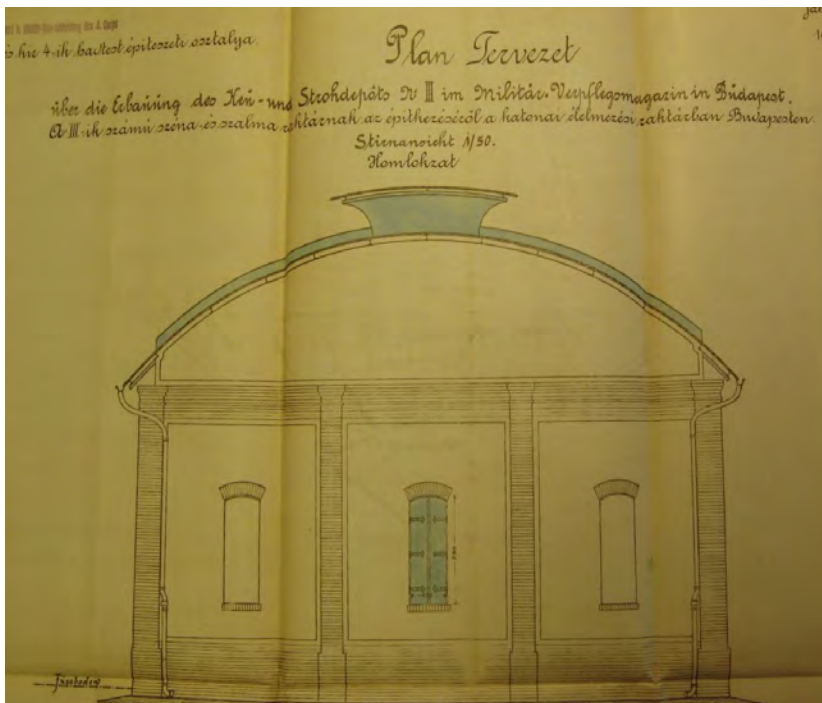 és kir 4-ik hadtest épitészeti osztálya.
Plan Tervezet
über die Erbauung des Heu- und Strohdepôts № III im Militär-Verpflegsmagazin in Budapest.
A III-ik számú széna- és szalma raktárnak az épitkezéséről a katonai élelmezési raktárban Budapesten.
Stirnansicht 1/50.
Homlokzat
Fussboden